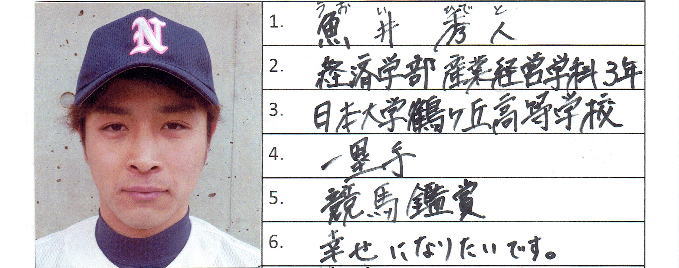 N
うおい ひでと
1. 魚井 秀人
2. 経済学部 産業経営学科3年
3. 日本大学鶴ヶ丘高等学校
4. 一塁手
5. 競馬鑑賞
6. 幸せになりたいです。